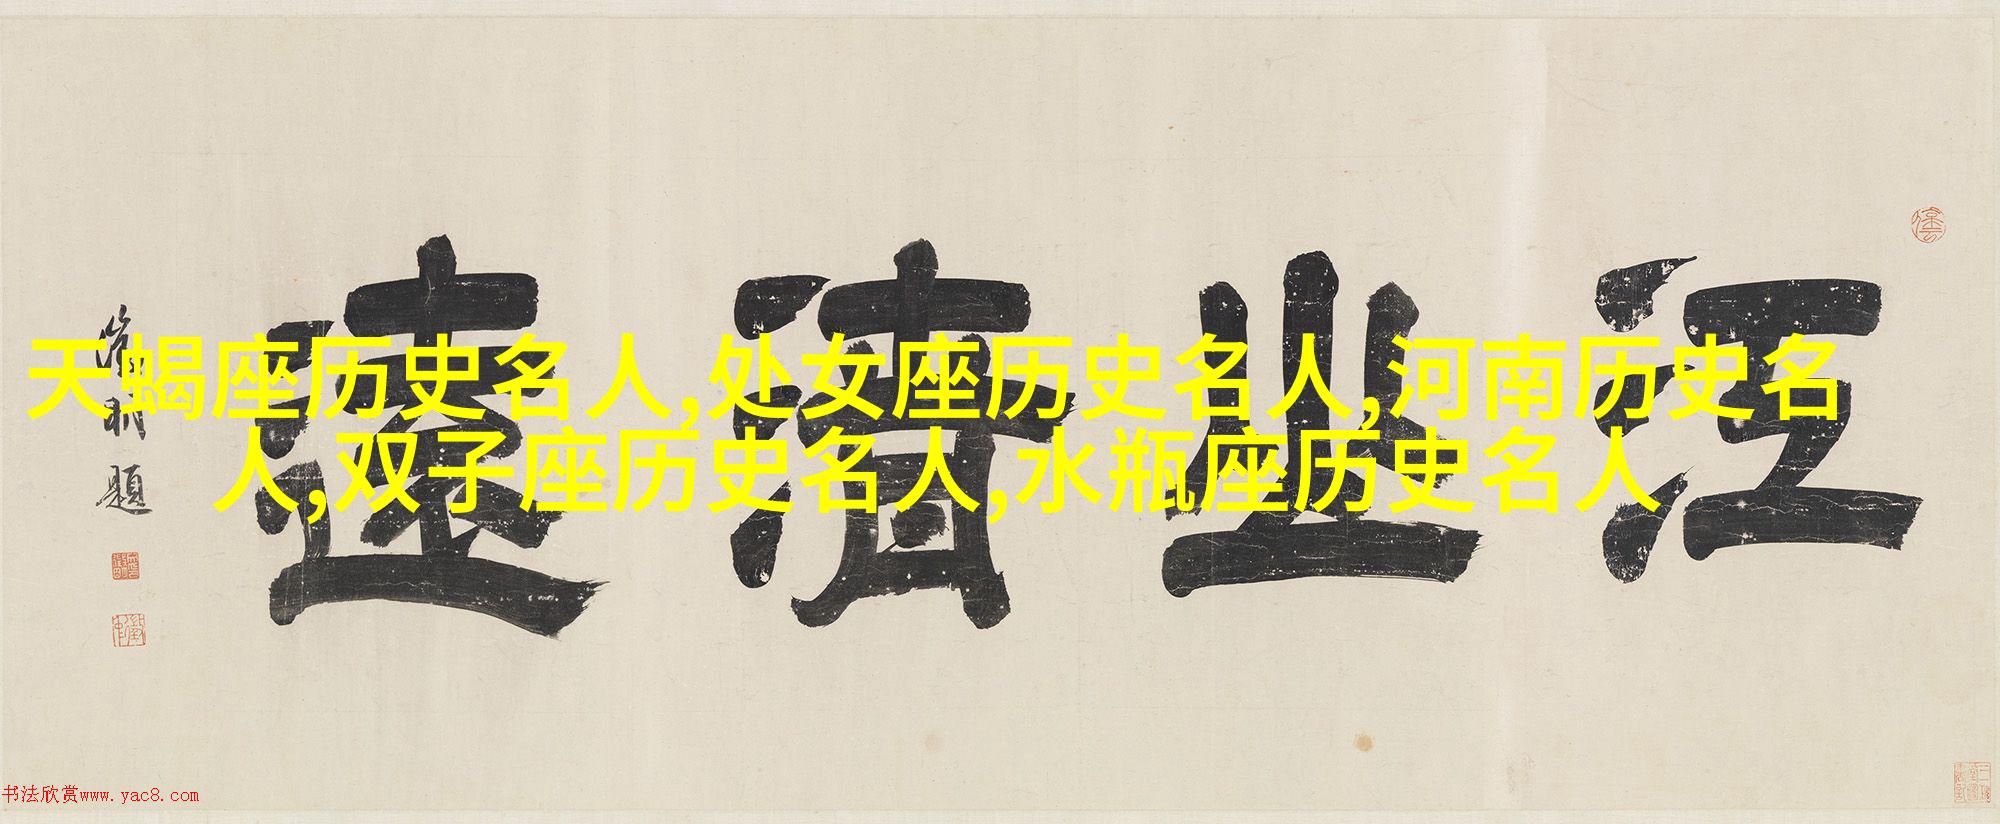 天蝎座历史名人,处女座历史名人,河南历史名
人,双子座历史名人,水瓶座历史名人
江山清遠
徵明題
书法欣赏www.yac8.com